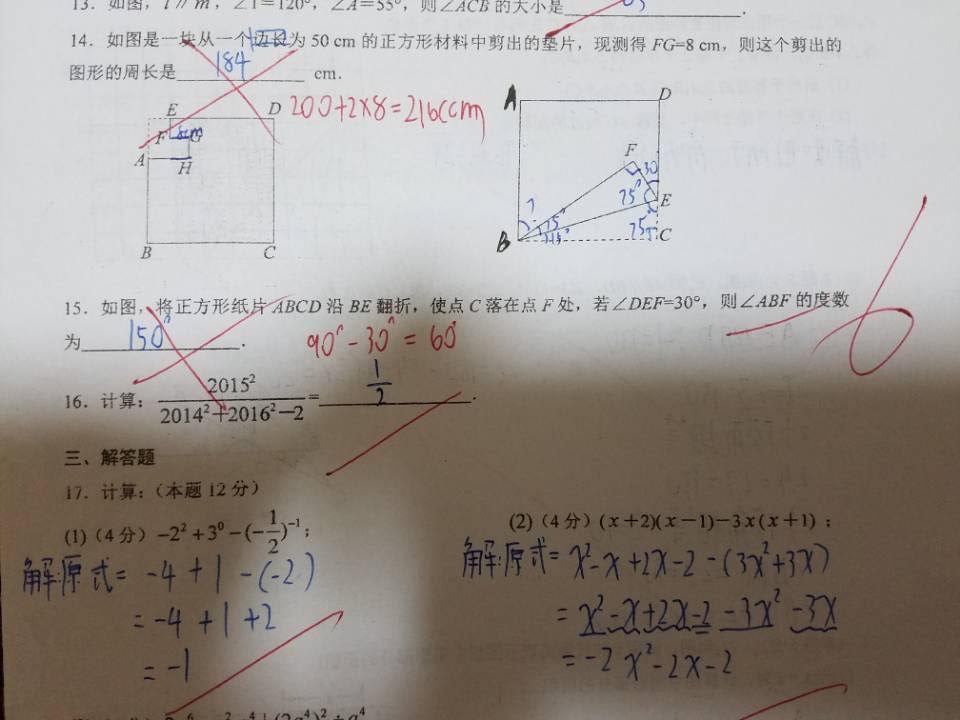 13．如图，l∥m，∠1=120°，∠A=55°，则∠ACB 的大小是
14．如图是一块从一个边长为 50 cm 的正方形材料中剪出的垫片，现测得 FG=8 cm，则这个剪出的
图形的周长是 184 cm.
200+2×8=216(cm)
E D
F 8cm G
A H
B C
A D
F
30
75° E
? 15°
15° 75°
B C
15．如图，将正方形纸片 ABCD 沿 BE 翻折，使点 C 落在点 F 处，若∠DEF=30°，则∠ABF 的度数
为 150° .
90°-30°=60°
6
16．计算：2015²/(2014²+2016²−2)= 1/2 .
三、解答题
17．计算：（本题 12 分）
(1)（4 分）−2²+3⁰−(−1/2)⁻¹；
解:原式= -4+1-(-2)
= -4+1+2
= -1
(2)（4 分）(x+2)(x−1)−3x(x+1)；
解:原式= x²-x+2x-2-(3x²+3x)
= x²-x+2x-2-3x²-3x
= -2x²-2x-2